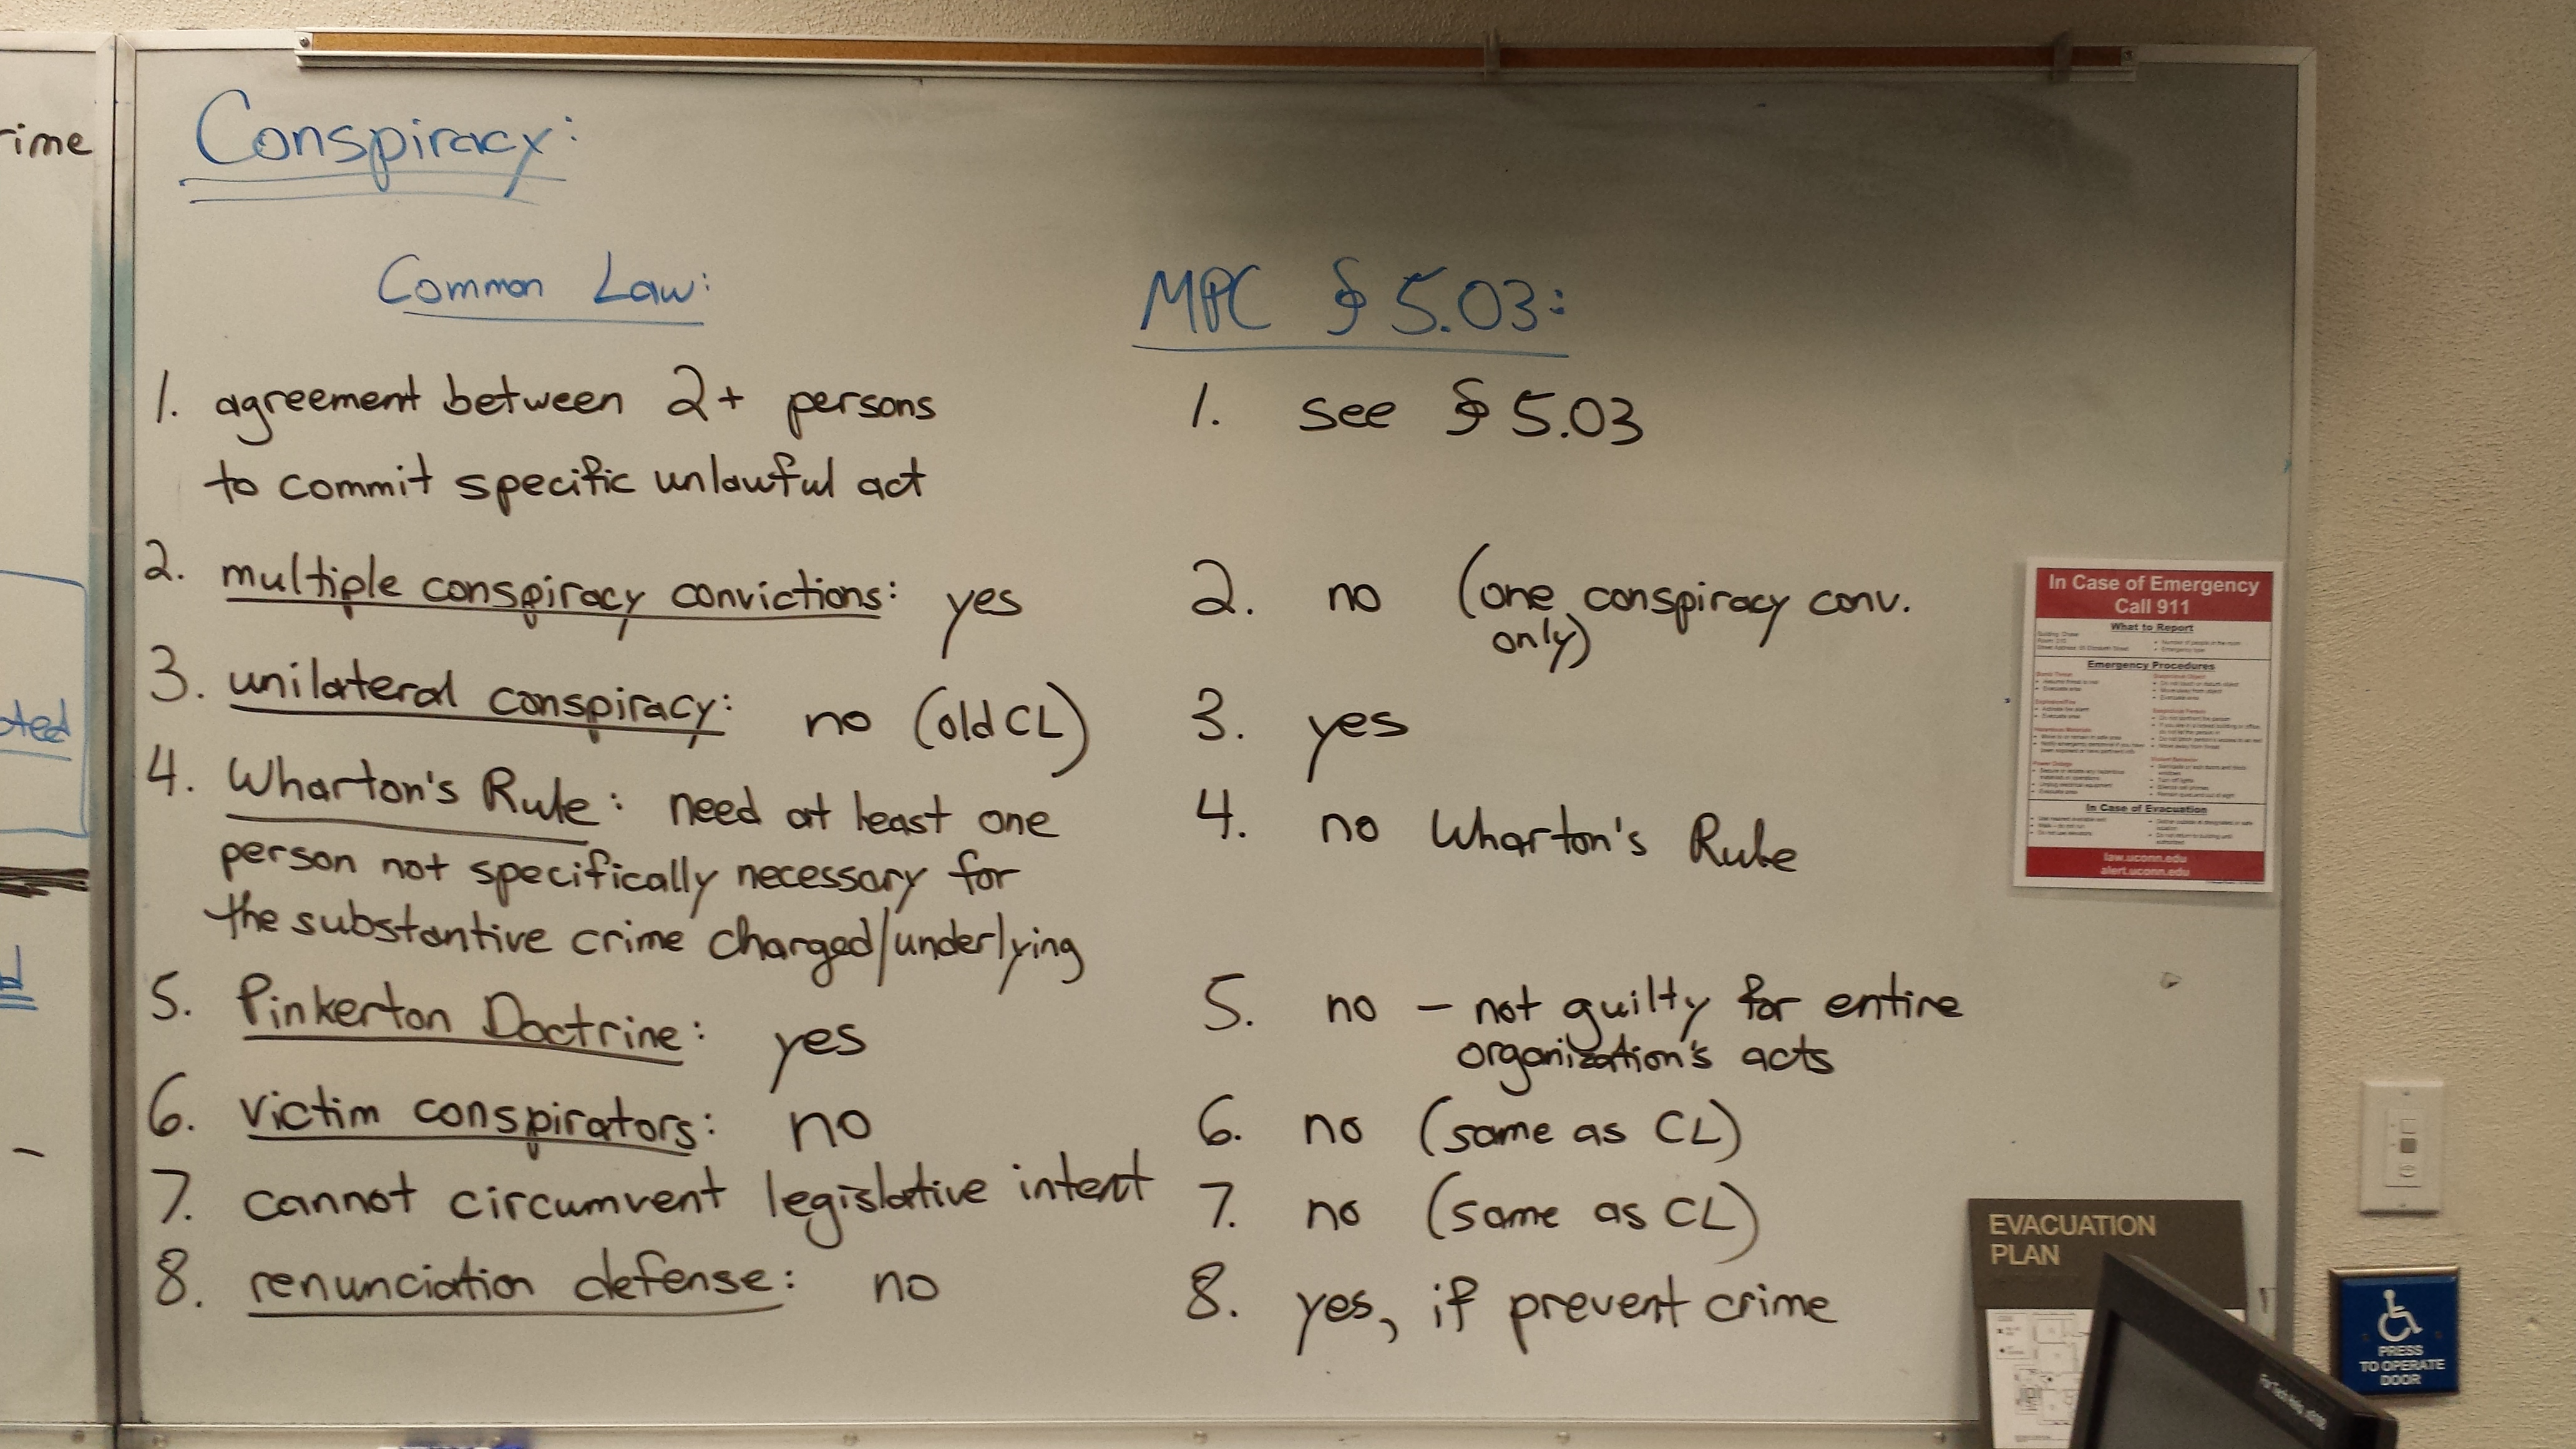 rime
oted
Conspiracy:
Common Law:
1. agreement between 2+ persons
to commit specific unlawful act
2. multiple conspiracy convictions: yes
3. unilateral conspiracy: no (old CL)
4. Wharton's Rule: need at least one
person not specifically necessary for
the substantive crime charged/underlying
5. Pinkerton Doctrine: yes
6. victim conspirators: no
7. cannot circumvent legislative intent
8. renunciation defense: no
MPC § 5.03:
1. see § 5.03
2. no (one conspiracy conv.
only)
3. yes
4. no Wharton's Rule
5. no – not guilty for entire
organization's acts
6. no (same as CL)
7. no (same as CL)
8. yes, if prevent crime
In Case of Emergency
Call 911
What to Report
Emergency Procedures
In Case of Evacuation
law.uconn.edu
alert.uconn.edu
EVACUATION
PLAN
PRESS
TO OPERATE
DOOR